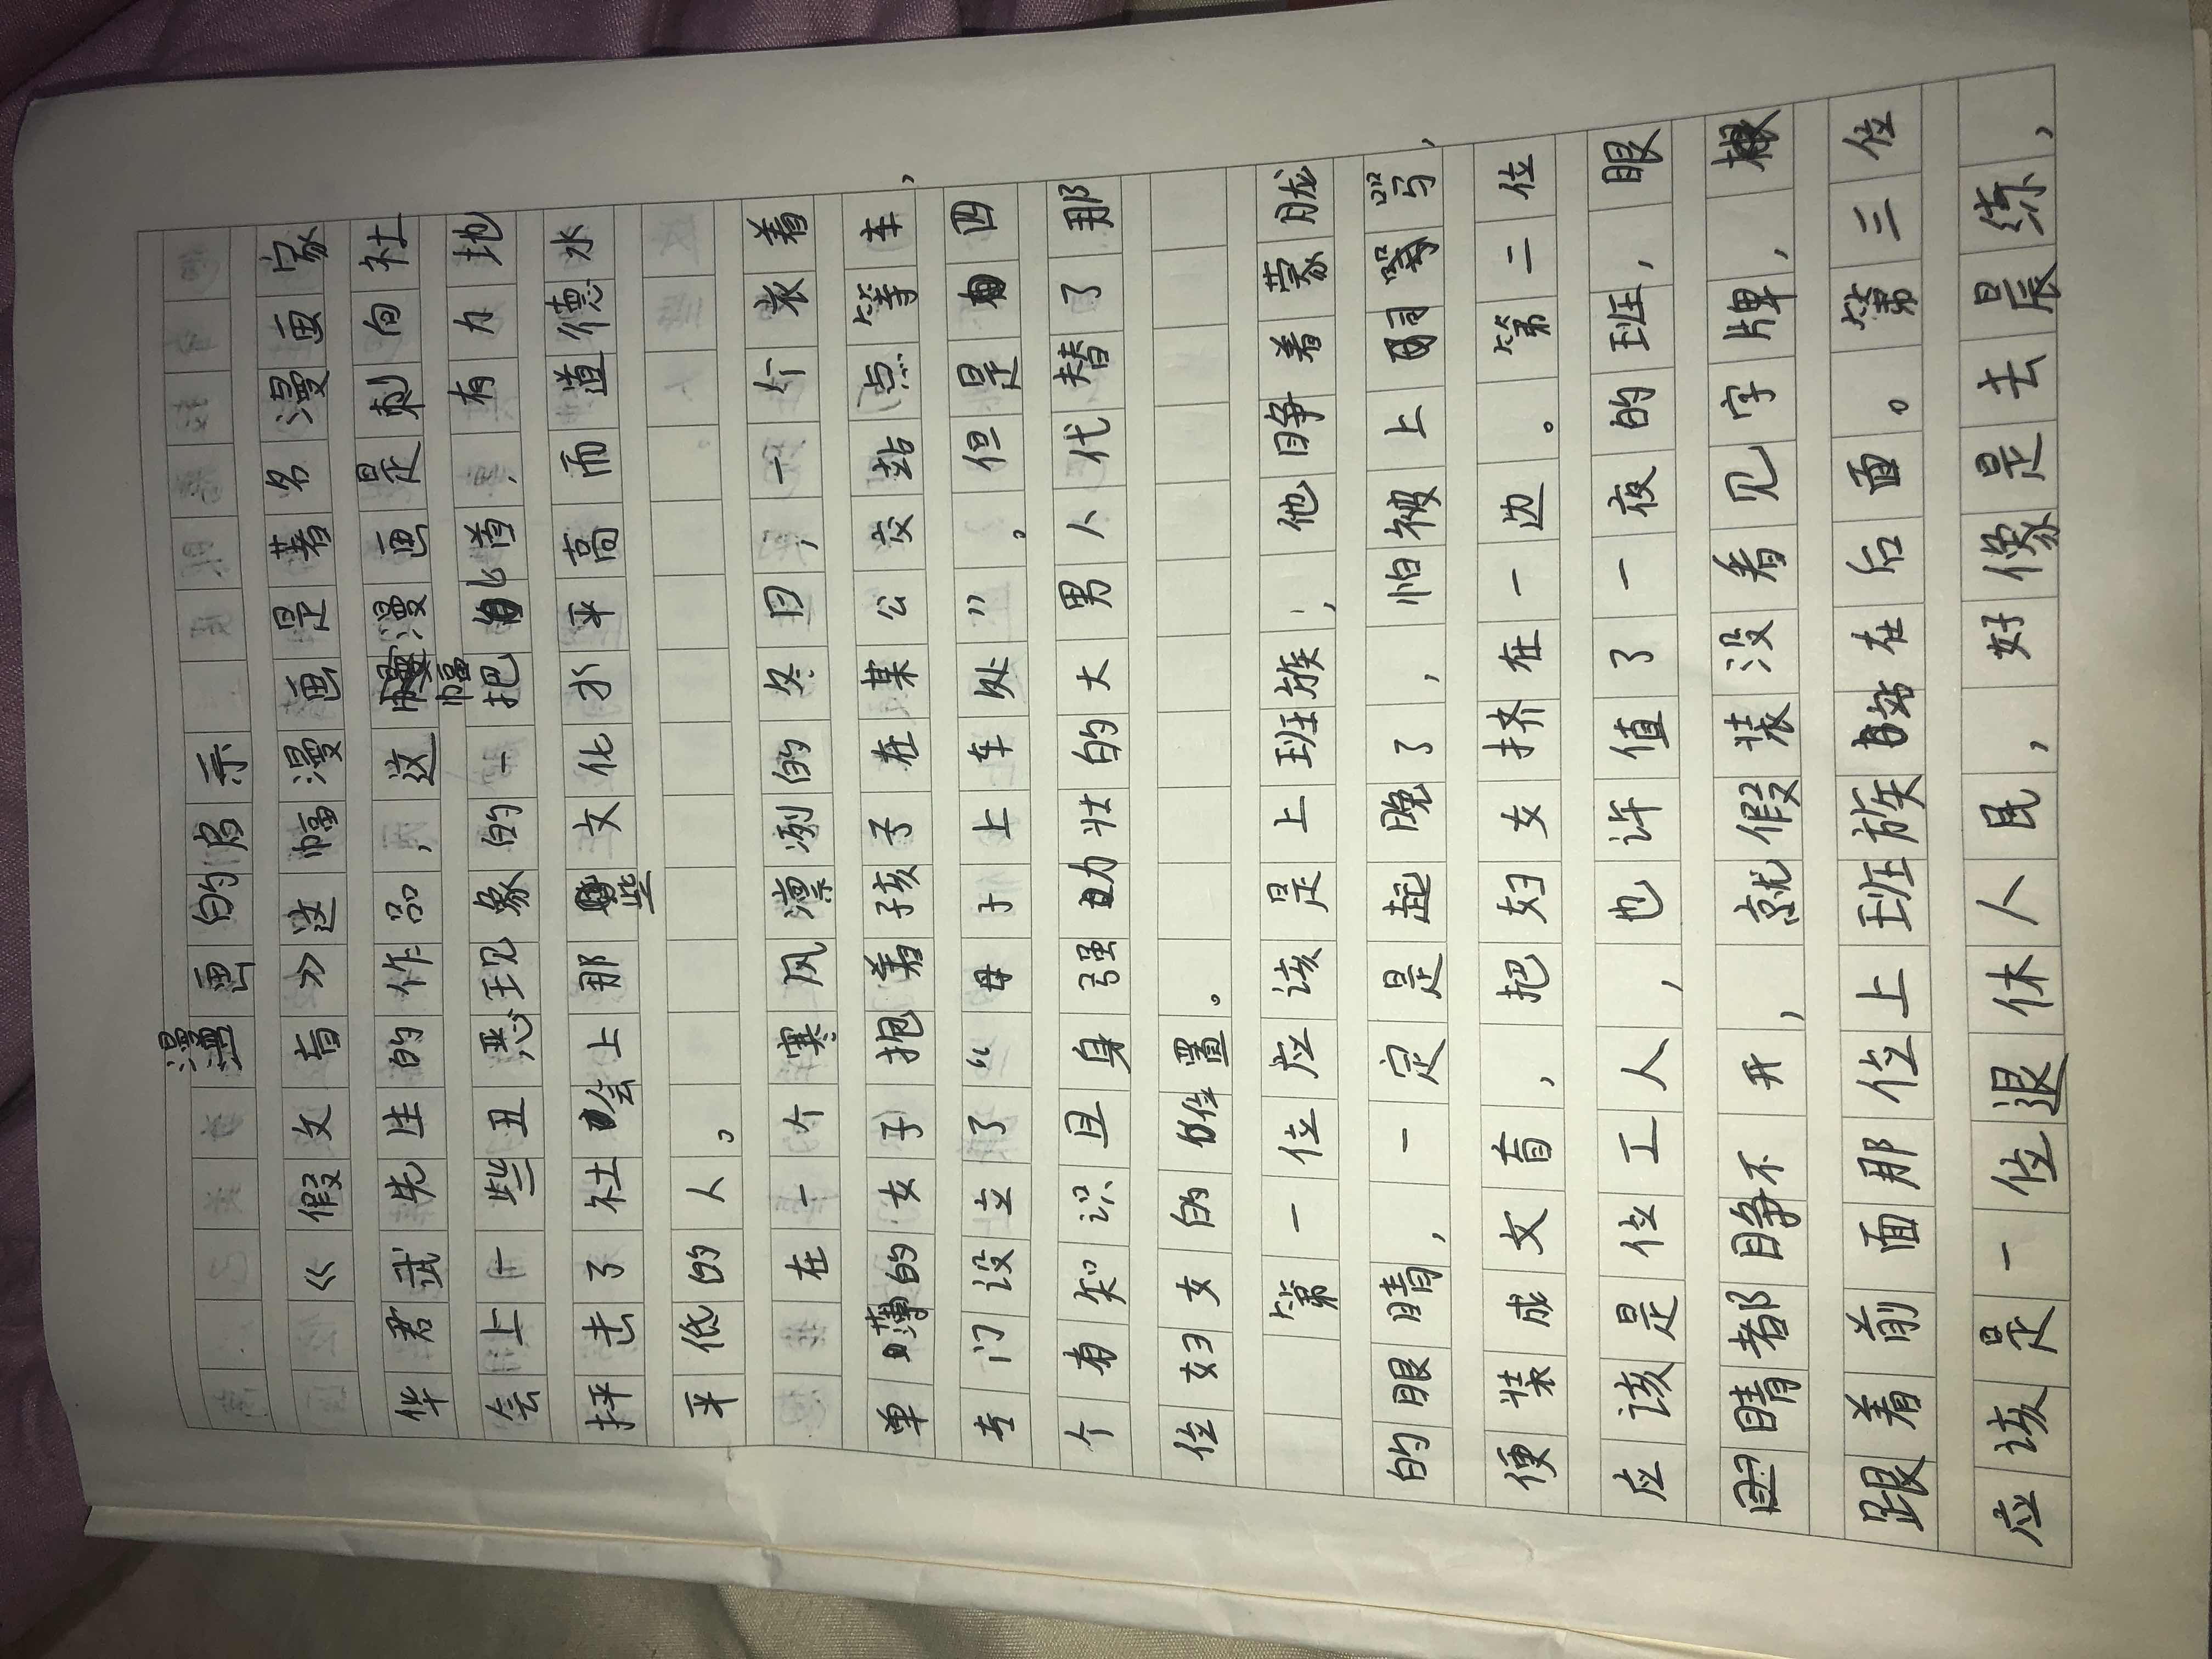 漫画的启示
《假文盲》这幅漫画是著名漫画家
华君武先生的作品，这幅漫画是刺向社
会上一些丑恶现象的一把匕首，有力地
抨击了社会上那些文化水平高而道德水
平低的人。
在一个寒风凛冽的冬日，一个衣着
单薄的女子抱着孩子在某公交站点等车，
专门设立了“母于上车处”。但是四
个有知识且身强力壮的大男人代替了那
位妇女的位置。
第一位应该是上班族，他睁着蒙胧
的眼睛，一定是起晚了，怕被上司骂，
便装成文盲，把妇女挤在一边。第二位
应该是位工人，也许值了一夜的班，眼
睛都睁不开，就假装没看见字牌，
跟着前面那位上班族站在后面。第三位
应该是一位退休人民，好像是去晨练，